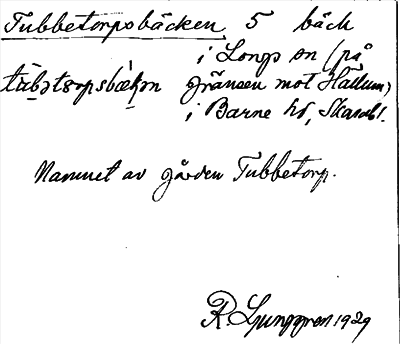 Tubbetorpsbäcken 5 bäck
i Longs sn (på
tùbətɔrpsbὲkən gränsen mot Hällum)
i Barne hd, Skarabl.
Namnet av gården Tubbetorp.
R. Ljunggren 1929